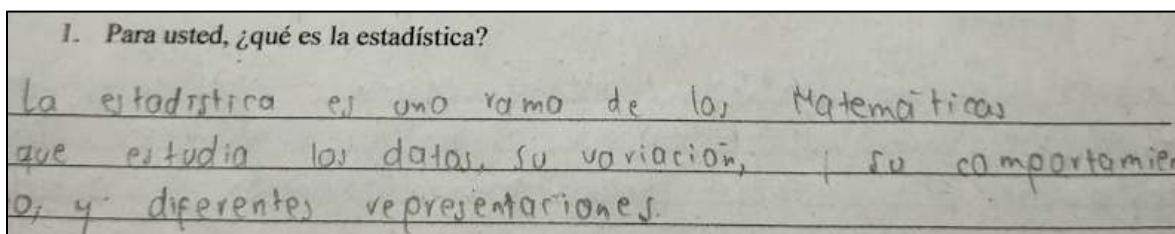 1. Para usted, ¿qué es la estadística?
La estadística es una rama de las Matemáticas
que estudia los datos, su variación, su comportamien
o, y diferentes representaciones.